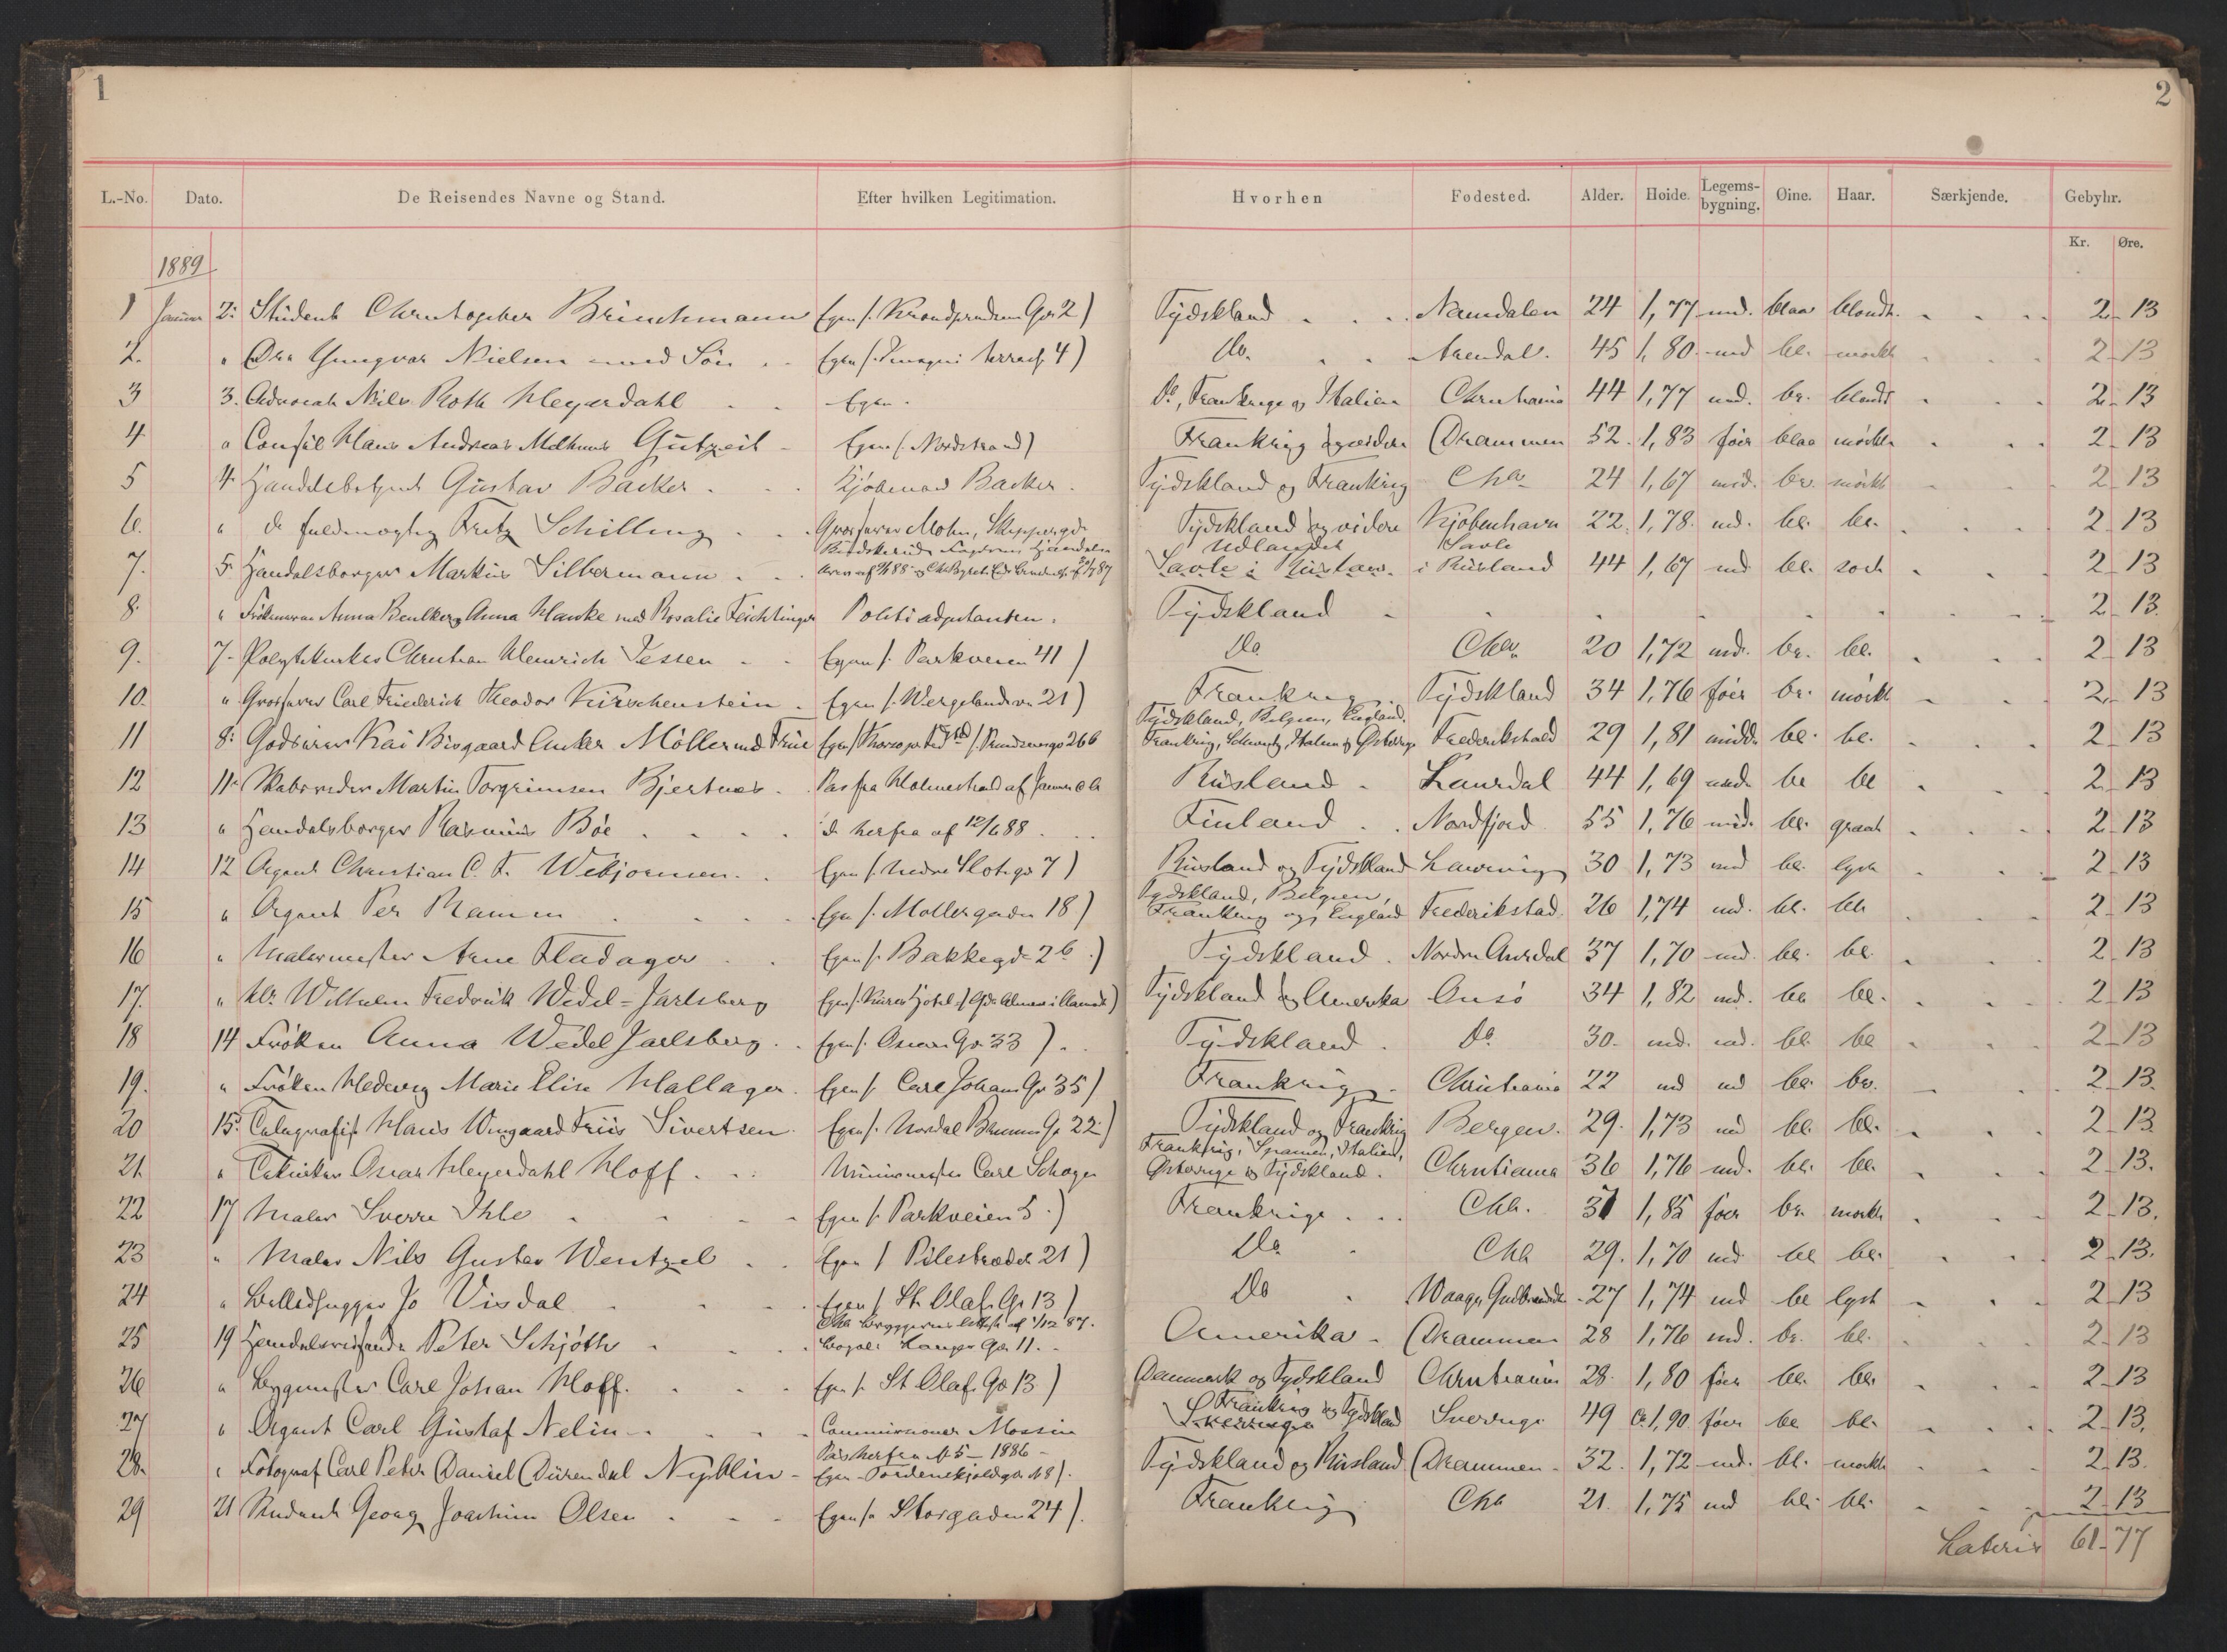 1
2
L.-No. Dato. De Reisendes Navne og Stand. Efter hvilken Legitimation. Hvorhen Fødested. Alder. Høide. Legems-bygning. Øine. Haar. Særkjende. Gebyhr.
Kr. Øre.
1889
1 Januar 2. Student Christopher Brinchmann Egen (Gr 2) Tydskland Namdalen 24 1,77 md. blaa blondt 2 13
2. " Yngvar Nielsen med Søn Egen (terrasse 4) Do. Arendal. 45 1,80 md bl. mørkt 2 13
3 3. Advocat Nils Roth Heyerdahl Egen Do, Frankrige og Italien Christiania 44 1,77 md. br. blondt 2 13
4 " Consul Hans Andreas Gutzeit Egen (Nordstrand) Frankrig og videre Drammen 52. 1,83 før blaa mørkt 2 13
5 4 Handelsbetjent Gustav Backer Kjøbmand Backer Tydskland og Frankrig Cha 24 1,67 md. br. mørkt 2 13
6. " do fuldmægtig Fritz Schilling Grosserer Mohn, Skippergd. Tydskland og videre Kjøbenhavn 22. 1,78. md. bl. bl. 2 13
7. 5. Handelsborger Markus Silbermann Udlandet Savle i Rusland. Savle i Rusland 44 1,67 md bl. sort 2 13
8. " Frøknerne Anna og Anna Hanke med Rosalie Feichtinger Politiadjutanten. Tydskland 2 13.
9. 7. Polytekniker Christian Heinrich Jessen Egen (Parkveien 41) Do Cha. 20 1,72 md. br. bl. 2 13
10. " Grosserer Carl Friederich Theodor Kirschenstein Egen (Wergelandsvn 21) Frankrig Tydskland 34 1,76 før br. mørkt 2 13
11 8. Godseier Kai Bisgaard Anker Møller med Frue 26b Tydskland, Belgien, England. Frankrig, Schweitz, Italien og Østerrige Frederikshald 29 1,81 midd. bl. bl. 2 13
12 11. Skibsreder Martin Torgrimsen Bjertnæs Pas fra Holmestrand af Januar Rusland Laurdal 44 1,69 md. bl bl 2 13
13 " Handelsborger Rasmus Bøe do herfra af 12/6 88 Finland Nordfjord 55 1,76 md. bl. graat 2 13
14 12 Agent Christian C. F. Egen (Nedre Slotsgd 7) Rusland og Tydskland Laurvig 30 1,73 md bl. lyst 2 13
15 " Agent Per Ramm Egen (Møllergaden 18) Tydskland, Belgien, Frankrig og England Frederikstad. 26 1,74 md. bl. bl. 2 13
16 " Malermester Arne Fladager Egen (Bakkegd. 2b) Tydskland Nordre Aurdal 37 1,70 md. bl. bl. 2 13
17. " Hr. Wilhelm Fredrik Wedel-Jarlsberg Tydskland og Amerika Ansø 34 1,82 md. bl bl. 2 13
18 14 Frøken Anna Wedel Jarlsberg Egen (Oscars Gd 33) Tydskland Do 30. md. md. bl. bl 2 13
19. " Frøken Hedevig Marie Elise Hallager Egen (Carl Johans Gd 35) Frankrig Christiania 22 md md bl. br. 2 13.
20 15. Telegrafist Hans Wingaard Friis Sivertsen Egen (Nordal Bruuns Gd 22) Tydskland og Frankrig Bergen. 29. 1,73 md bl. bl. 2 13
21 " Tekniker Oscar Heyerdahl Hoff Carl Schøyen Frankrig, Spanien, Italien, Østerrige og Tydskland. Christiania 36 1,76 md. bl. bl. 2 13.
22 17 Maler Sverre Ihle Egen (Parkveien 5) Frankrige Cha. 31 1,85 før br. mørkt 2 13.
23 " Maler Nils Gustav Wentzel Egen (Pilestrædet 21) Do Cha 29. 1,70 md bl bl. 2 13.
24 " Billedhugger Jo Visdal Egen (St. Olafs Gd 13) Do Waage Gudbrandsd. 27 1,74 md bl lyst 2 13
25 19 Handelsreisende Peter Schjøth Langes Gd 11. Amerika Drammen 28 1,76 md. br. bl. 2 13
26 " Bygmester Carl Johan Hoff. Egen (St. Olafs Gd 13) Danmark og Tydskland Christiania 28. 1,80 før bl. bl. 2 13
27 " Agent Carl Gustaf Nelin Frankrig og Tydskland Sverrige Sverrige 49 Ca 1,90. før bl bl. 2 13.
28. " Fotograf Carl Peter Daniel Dürendal Nyblin Pas herfra No 5 - 1886 Egen Tordenskjoldsgd. No 8). Tydskland og Rusland Drammen 32. 1,72 md. bl. mørkt 2 13.
29 21 Student Georg Joachim Olsen Egen (Storgaden 24). Frankrig Cha 21. 1,75 md bl. bl. 2 13
Lateris 61 77